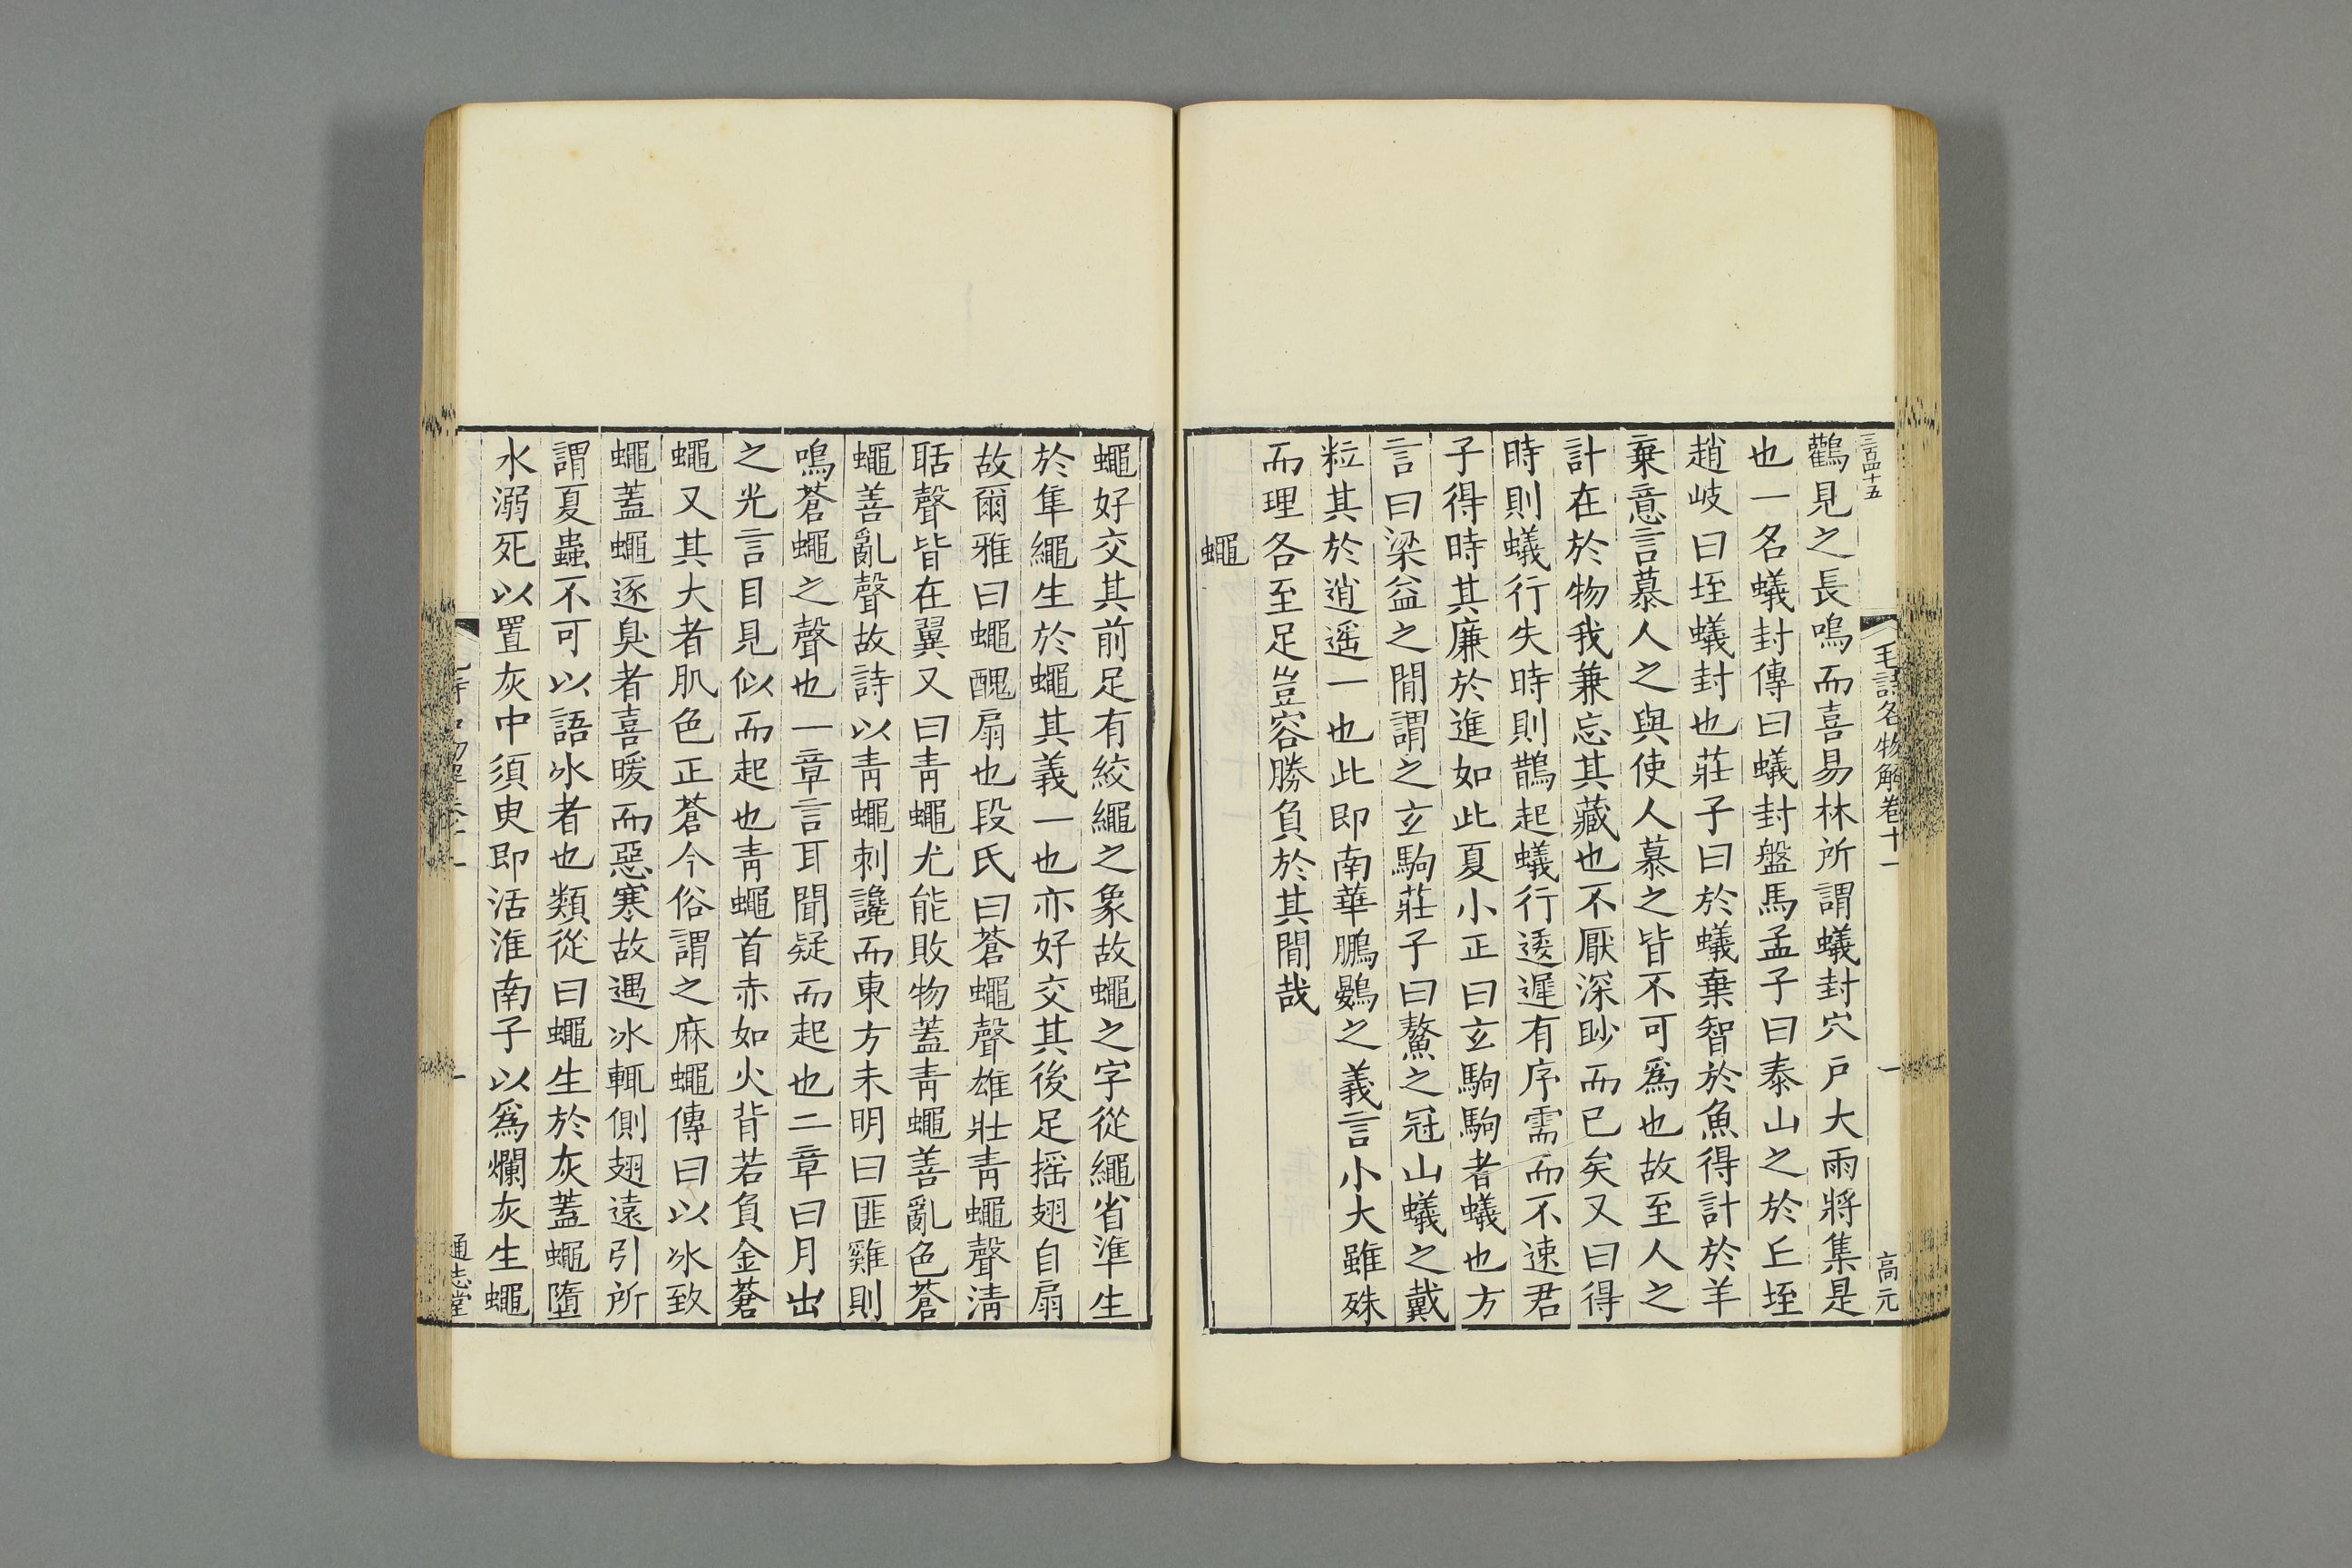 三百四十五
毛詩名物解卷十一
一
高元
鸛見之長鳴而喜易林所謂蟻封穴戸大雨將集是
也一名蟻封傳曰蟻封盤馬孟子曰泰山之於丘垤
趙岐曰垤蟻封也莊子曰於蟻棄智於魚得計於羊
棄意言慕人之與使人慕之皆不可爲也故至人之
計在於物我兼忘其藏也不厭深眇而已矣又曰得
時則蟻行失時則鵲起蟻行逶遲有序需而不速君
子得時其廉於進如此夏小正曰玄駒駒者蟻也方
言曰梁益之間謂之玄駒莊子曰鰲之冠山蟻之戴
粒其於逍遥一也此即南華鵬鷃之義言小大雖殊
而理各至足豈容勝負於其間哉
蠅
蠅好交其前足有絞繩之象故蠅之字從繩省準生
於隼繩生於蠅其義一也亦好交其後足摇翅自扇
故爾雅曰蠅醜扇也段氏曰蒼蠅聲雄壯青蠅聲淸
聒聲皆在翼又曰青蠅尤能敗物蓋青蠅善亂色蒼
蠅善亂聲故詩以青蠅刺讒而東方未明曰匪雞則
鳴蒼蠅之聲也一章言耳聞疑而起也二章曰月出
之光言目見似而起也青蠅首赤如火背若負金蒼
蠅又其大者肌色正蒼今俗謂之麻蠅傳曰以冰致
蠅蓋蠅逐臭者喜暖而惡寒故遇冰輒側翅遠引所
謂夏蟲不可以語冰者也類從曰蠅生於灰蓋蠅墮
水溺死以置灰中須臾即活淮南子以爲爛灰生蠅
一
通志堂